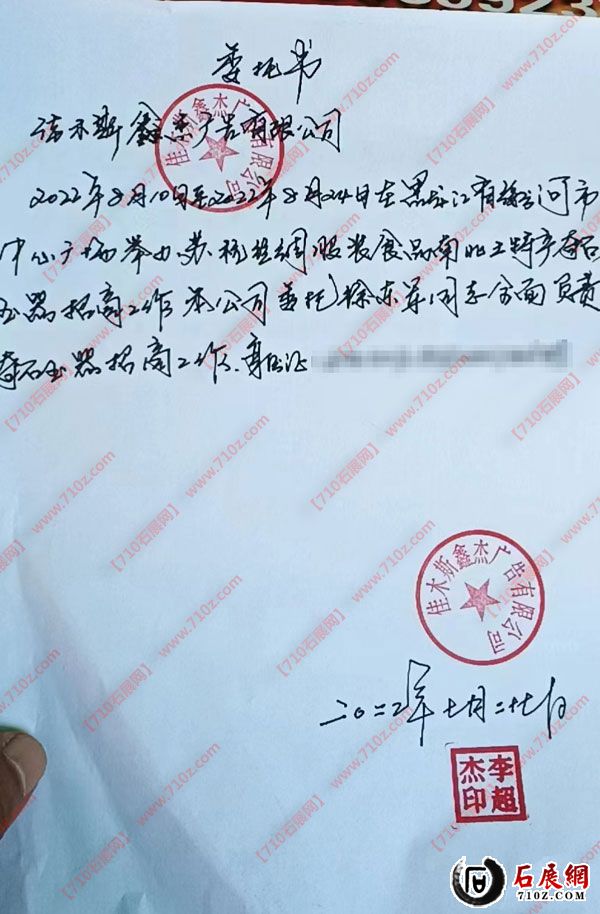 委托书
佳木斯鑫杰广告有限公司
2022年8月10日至2022年8月24日在黑龙江省 河市
中心广场举办苏杭丝绸服装食品南北土特产奇石
玉器招商工作 本公司委托徐东军同志全面负责
奇石玉器招商工作.身份证
佳木斯鑫杰广告有限公司
佳木斯鑫杰广告有限公司
二〇二二年七月二十七日
李超杰印
石展網
710Z.COM
【710石展网】www.710z.com